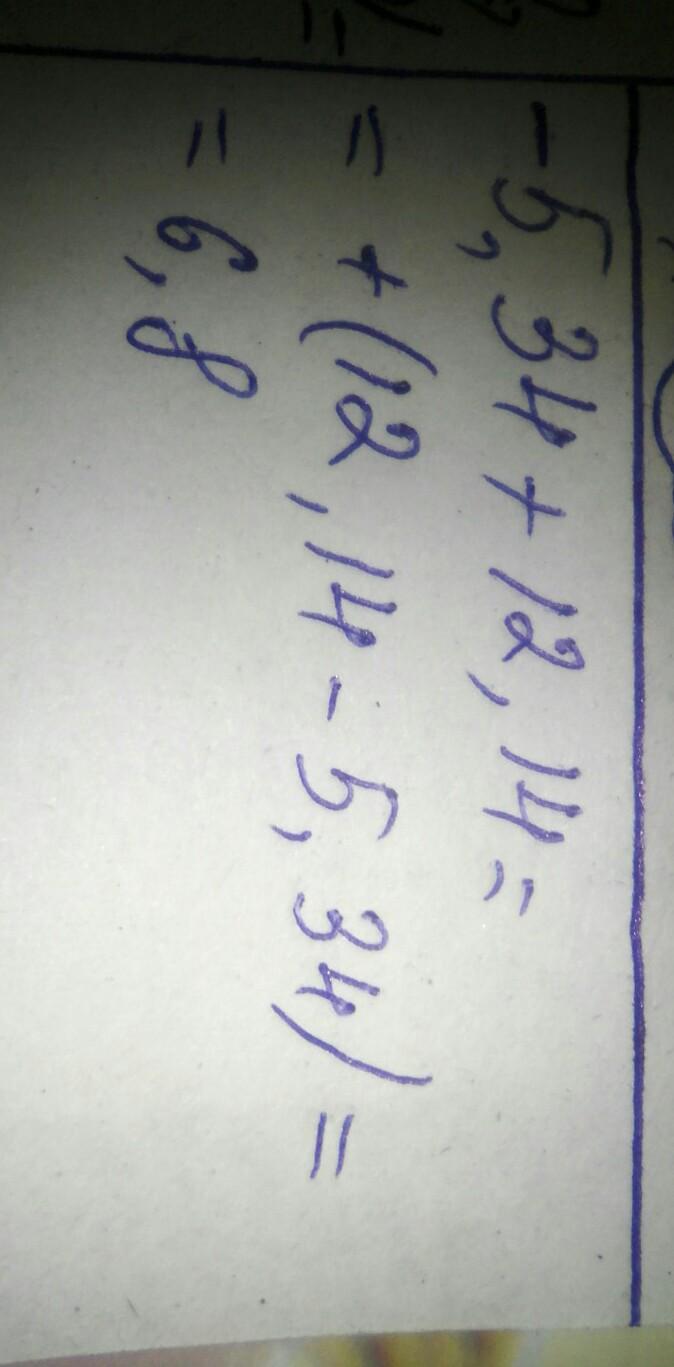 -5,34 + 12,14 =
= + (12,14 - 5,34) =
= 6,8